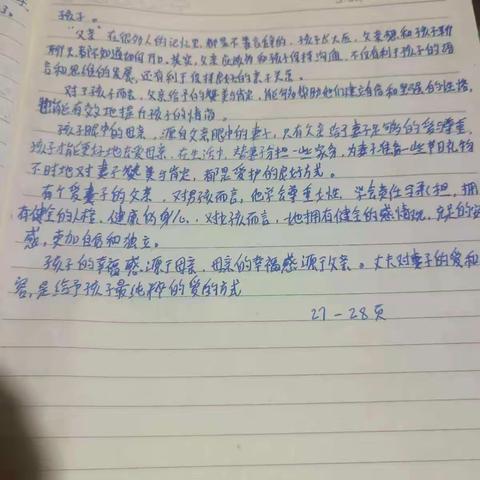 孩子。
"父亲"在很多人的记忆里,都是不善言辞的,孩子长大后,父亲想和孩子聊
聊天都不知道如何开口。其实,父亲应该和孩子保持沟通,不仅有利于孩子的语
言和思维的发展,还有利于保持良好的亲子关系。
对于孩子而言,父亲给予的赞美与肯定,能够帮助他们建立自信和坚强的性格,
也能有效地提升孩子的情商。
孩子眼中的母亲,源自父亲眼中的妻子,只有父亲给了妻子足够的爱与尊重,
孩子才能更好地去爱母亲,在生活中,替妻子分担一些家务,为妻子准备一些节日礼物
不时地对妻子赞美与肯定,都是爱护的良好方式。
有个爱妻子的父亲,对男孩而言,他学会尊重女性,学会责任与承担,拥
有健全的人格,健康的身心,对女孩而言,她拥有健全的感情观,充足的安
感,更加自信和独立。
孩子的幸福感源于母亲,母亲的幸福感源于父亲。丈夫对妻子的爱和
容,是给予孩子最纯粹的爱的方式
27-28页